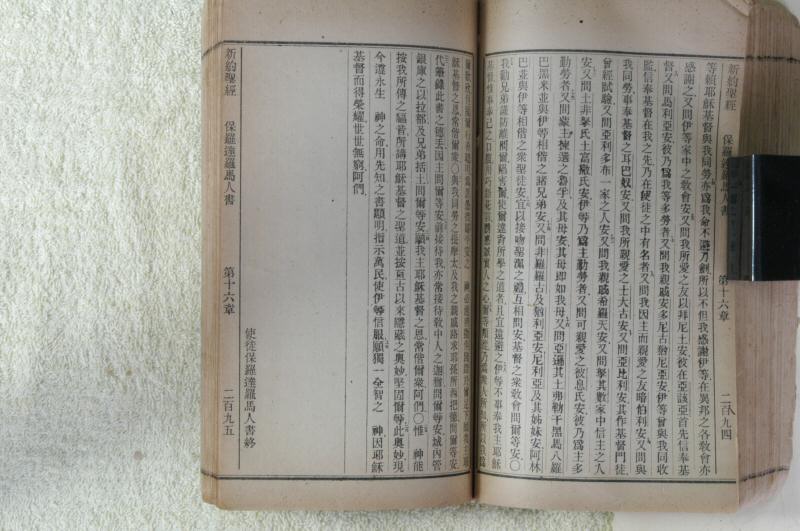 新約聖經 保羅達羅馬人書 第十六章 二百九四
等組耶穌基督與我同勞亦爲我命不避刀劍所以不但我感謝伊等在異邦之各敎會亦
感謝之又問伊等家中之敎會安又問我所愛之友以拜尼土安彼在亞該亞首先信奉基
督又問馬利亞安彼乃爲我等多勞者又問我親戚安多尼古猶尼亞安伊等曾與我同收
監信奉基督在我之先乃在使徒之中有名者又問我因主而親愛之友暗伯利安又問與
我同勞事奉基督之耳巴奴安又問我所親愛之士大古安又問亞比利安其作基督門徒
曾經試驗又問亞利多布一家之人安又問我親戚希羅天安又問拏其數家中信主之人
安又問土非拏氏土富撒氏安伊等乃爲主勤勞者又問可親愛之彼息氏安彼乃爲主多
勤勞者又問蒙主揀選之魯孚及其母安其母即如我母又問亞遜其土弗勒干黑馬八羅
巴黑米並與伊等相偕之諸兄弟安又問非羅羅古及猶利亞安尼利亞及其姊妹安阿林
巴安並與伊等相偕之衆聖徒安宜以接吻聖潔之禮互相問安基督之衆敎會問爾等安〇
我勸兄弟謹防離間爾 使爾違背所學之道者且宜遠避之伊等不事奉我主耶穌
基督惟事奉己之口腹
穌基督之恩偕爾衆〇與我同勞之提摩太及我之親戚路求耶孫所西把德問爾等安
代著錄此書之德丟因主問爾等安前接待我亦常接待敎中人之迦猶問爾等安城內管
銀庫之以拉都及兄弟括土問爾等安願我主耶穌基督之恩常偕爾衆阿們〇惟 神能
按我所傳之福音所講耶穌基督之聖道並按亙古以來隱藏之奧妙堅固爾等此奧妙現
今遵永生 神之命用先知之書顯明指示萬民使伊等信服願獨一全智之 神因耶穌
基督而得榮耀世世無窮阿們
使徒保羅達羅馬人書終
新約聖經 保羅達羅馬人書 第十六章 二百九五